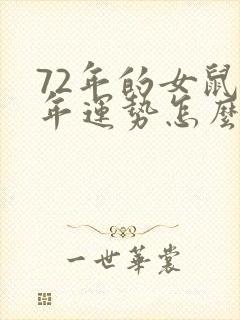 72年的女鼠
年運势怎麽
一世華裳